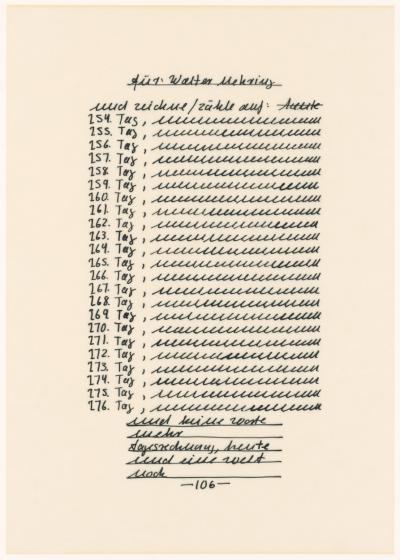 für: Walter Mehring
und zeichne/zähle auf: heute
254. Tag,
255. Tag,
256. Tag,
257. Tag,
258. Tag,
259. Tag,
260. Tag,
261. Tag,
262. Tag,
263. Tag,
264. Tag,
265. Tag,
266. Tag,
267. Tag,
268. Tag,
269. Tag,
270. Tag,
271. Tag,
272. Tag,
273. Tag,
274. Tag,
275. Tag,
276. Tag,
und keine worte
mehr
tagesrechnung, heute
und eine welt
noch
—106—